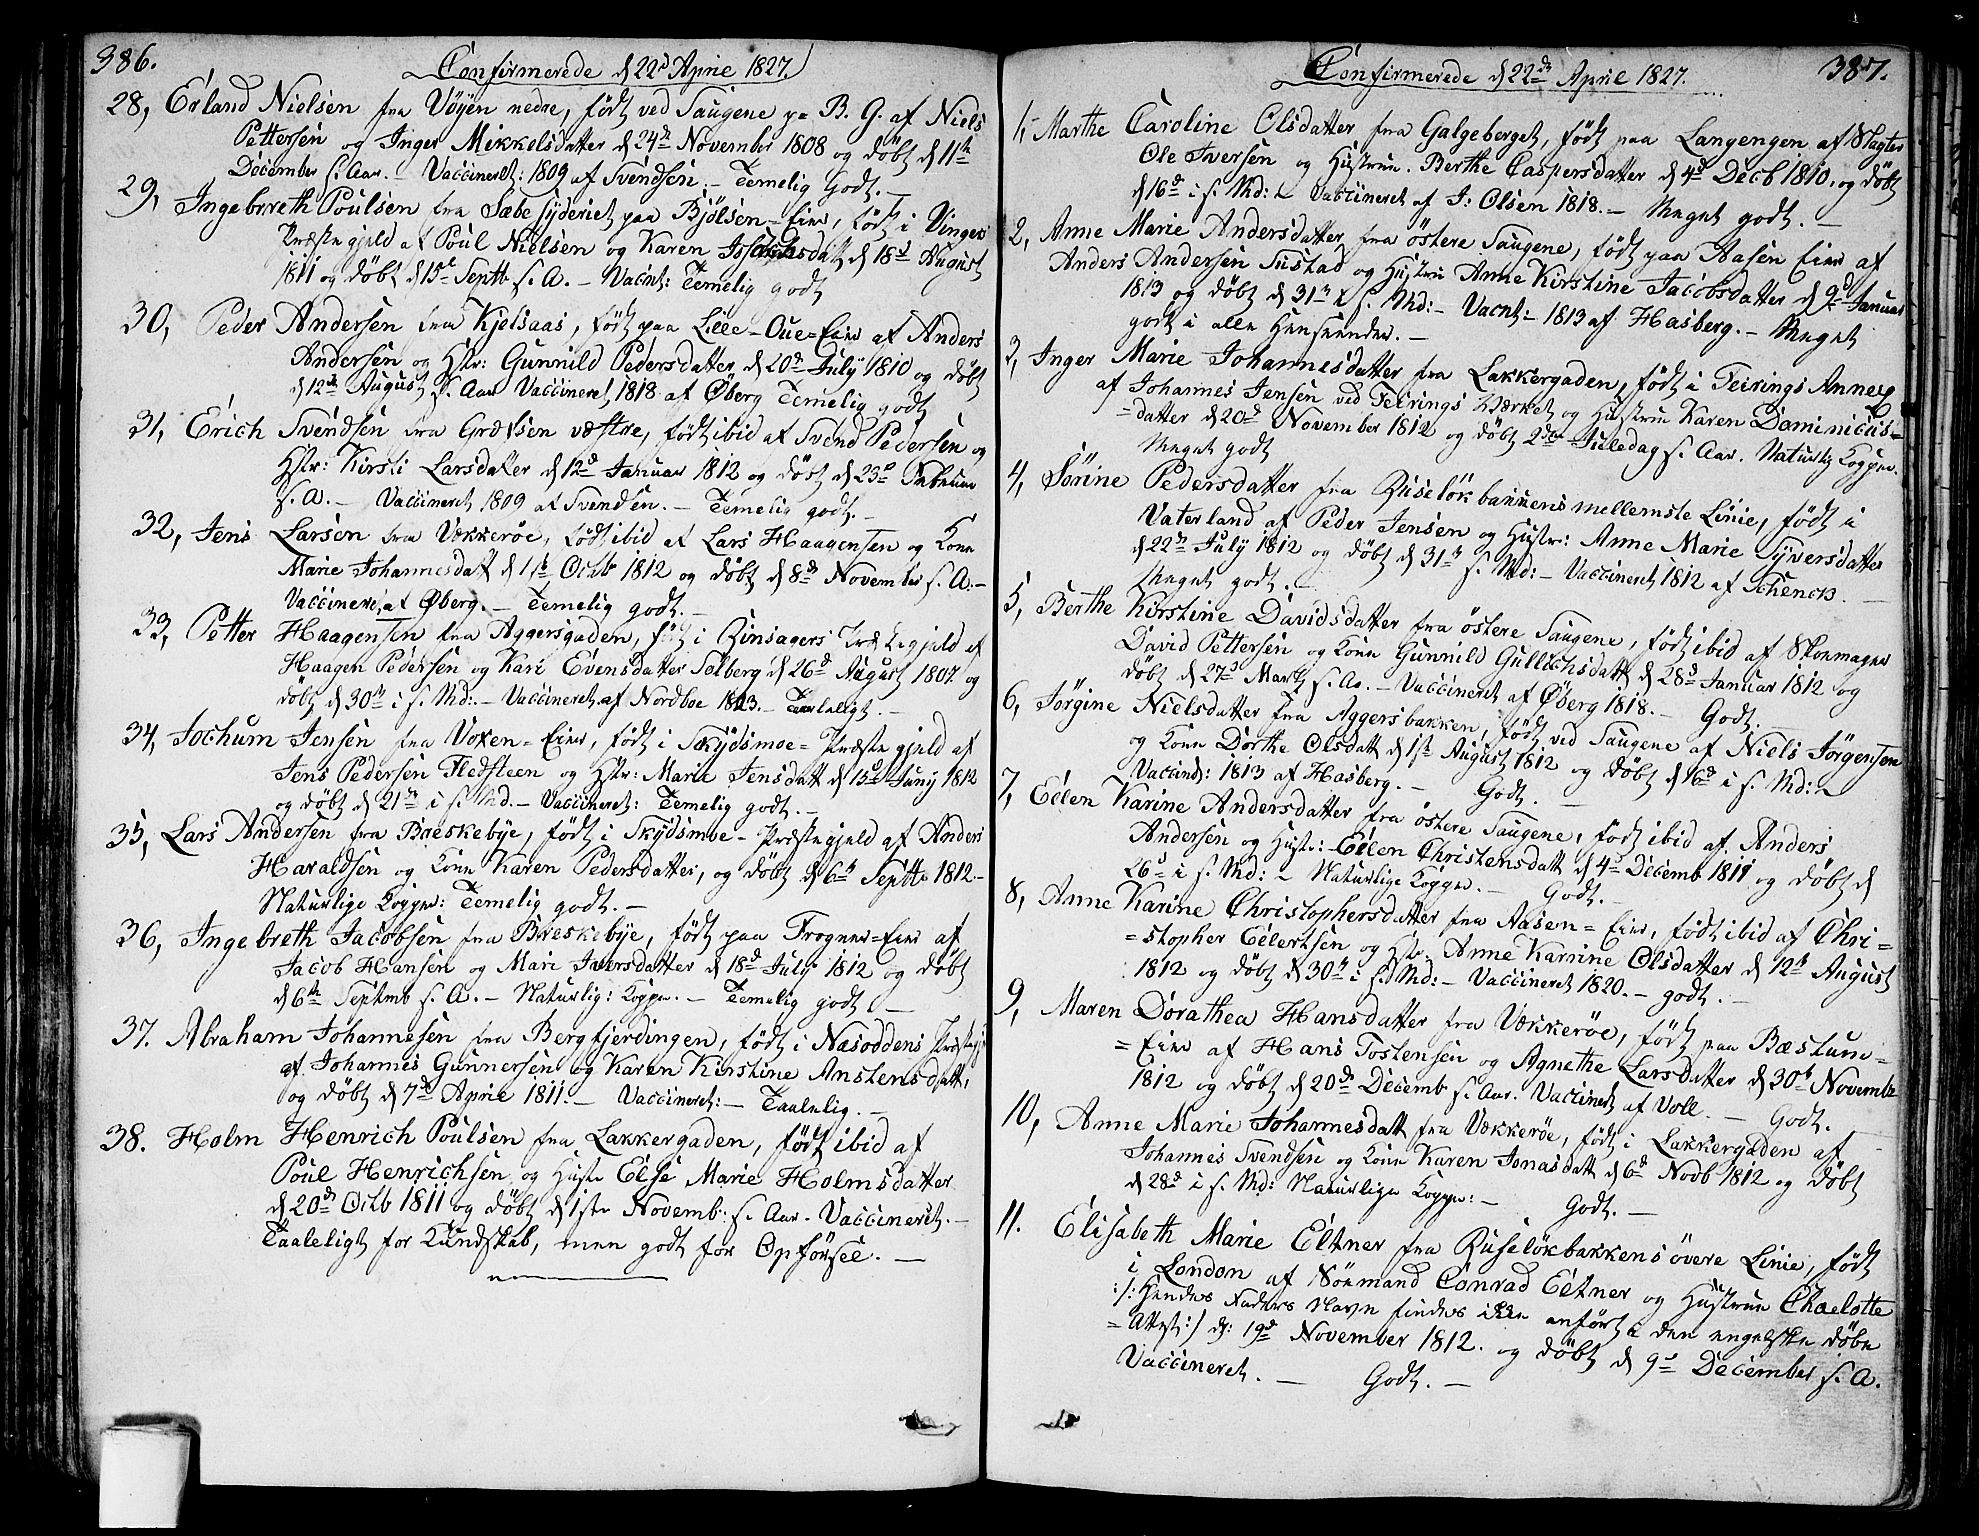 386.
Confirmerede d 22d Aprie 1827.
28, Erland Nielsen fra Vöyen nedre, födt ved Saugene pa B. G. af Niels
Pettersen og Inger Mikkelsdatter d 24de November 1808 og döbt d 11te
December s. Aar. – Vaccineret: 1809 af Svendsen. – Temelig Godt. –
29, Ingebrreth Poulsen fra Sæbesyderiet paa Bjölsen-Eier, födt i Vinger
Præstegjeld af Poul Nielsen og Karen d 18d August
1811 og döbt d 15de Septb. s. A. – Vacint: Temelig godt
30, Peder Andersen fra Kjelsaas, födt paa Lille-Oue-Eier af Anders
Andersen og Hstr: Gunnild Pedersdatter d 20de July 1810 og döbt
d 12te August s. Aar Vaccineret 1818 af Øberg Temelig godt
31, Erich Svendsen fra Grefsen væstre, födt ibid af Svend Pedersen og
Hstr: Kirsti Larsdatter d 12d Januar 1812 og döbt d 23de Februar
s. A. – Vaccineret 1809 af Svendsen. – Temelig godt. –
32, Jens Larsen fra Vækkeröe, födt ibid af Lars Haagensen og Kone
Marie Johannesdatt d 11te Octb 1812 og döbt d 8de November s. A. –
Vaccineret af Øberg. – Temelig godt. –
33, Petter Haagensen fra Aggersgaden, födt i Rinsagers Præstegjeld af
Haagen Pedersen og Kari Evensdatter Solberg d 26d August 1807 og
döbt d 30te i s. Md: – Vaccineret af Nordboe 1813. – Taaleligt. –
34, Jochum Jensen fra Voxen-Eier, födt i Skydsmoe-Præstegjeld af
Jens Pedersen Fledsteen og Hstr: Marie Jensdatt d 15de Juny 1812
og döbt d 21de i s. Md. – Vaccineret: Temelig godt. –
35, Lars Andersen fra Breskebye, födt i Skydsmoe-Præstegjeld af Anders
Haraldsen og Kone Karen Pedersdatter, og döbt d 6te Septb 1812 –
Naturlige Kopper: Temelig godt. –
36, Ingebreth Jacobsen fra Breskebye, födt paa Frogner-Eier af
Jacob Hansen og Mari Iversdatter d 18d July 1812 og döbt
d 6te Septmb s. A. – Naturlig: Kopper. – Temelig godt –
37. Abraham Johannesen fra Bergfjerdingen, födt i Næsoddens Præstegj
af Johannes Gunnersen og Karen Kirstine Anstensdatt,
og döbt d 7de Aprie 1811. – Vaccineret: – Taalelig. –
38. Holm Henrich Poulsen fra Lakkergaden, födt ibid af
Poul Henrichsen og Hustr Else Marie Holmsdatter
d 20de Octb 1811 og döbt d 1ste Novemb: s. Aar. Vaccineret. –
Taaleligt for Kundskab, men godt for Opförsel. –
387.
Confirmerede d 22de April 1827.
1, Marthe Caroline Olsdatter fra Galgeberget, födt paa Langengen af Slagter
Ole Iversen og Hustrue Berthe Caspersdatter d 4de Decb 1810. og döbt
d 16d i s. Md: – Vaccineret af J: Olsen 1818. – Meget godt. –
2, Anne Marie Andersdatter fra östere Saugene, födt paa Aasen Eier af
Anders Andersen Sustad og Hustrue Anne Kirstine Jacobsdatter d 9d Januar
1813 og döbt d 31te i s. Md: – Vacnt: – 1813 af Hasberg. – Meget
godt i alle Henseender. –
3, Inger Marie Johannesdatter fra Lakkergaden, födt i Feirings Annex
af Johannes Jensen ved Feirings Værket og Hustrue Karen Dominicus=
=datter d 20de November 1812 og döbt 2den Juledag s. Aar. Naturlig Kopper.
Meget godt
4, Sörine Pedersdatter fra Ruselökbakkens mellemste Linie, födt i
Vaterland af Peder Jensen og Hustr: Anne Marie Syversdatter
d 22de July 1812 og döbt d 31te s. Md: – Vaccineret 1812 af Schenck. –
Meget godt. –
5, Berthe Kirstine Davidsdatter fra östere Saugene, födt ibid af Skomager
David Pettersen og Kone Gunnild Gullichsdatt d 28de Januar 1812 og
döbt d 27de Marts s. Aa. – Vaccineret af Øberg 1818. – Godt. –
6, Jörgine Nielsdatter fra Aggersbakken, födt ved Saugene af Niels Jörgensen
og Kone Dorthe Olsdatt d 1ste August 1812 og döbt d 16d i s. Md: –
Vaccint: 1813 af Hasberg. – Godt. –
7, Eelen Karine Andersdatter fra östere Saugene, födt ibid af Anders
Andersen og Hustr: Eelen Christensdatt d 4de Decemb 1811 og döbt d
26d i s. Md: – Naturlige Kopper. – Godt. –
8, Anne Karine Christophersdatter fra Aasen=Eier, födt ibid af Chri=
=stopher Eilertsen og Hstr. Anne Karnine Olsdatter d 12te August
1812 og döbt d 30te i s. Md: – Vaccineret 1820. – godt. –
9, Maren Dorathea Hansdatter fra Vækkeröe, födt paa Bæstum=
=Eier af Hans Tostensen og Agnethe Larsdatter d 30te Novembr
1812 og döbt d 20de Decemb s. Aar. Vaccinert af Voll. – Godt.
10, Anne Marie Johannesdatt fra Vækkeröe, födt i Lakkergaden af
Johannes Svendsen og Kone Karen Jonasdatt d 6d Novb 1812 og döbt
d 28d i s. Md: Naturlige Kopper: – Godt. –
11. Elisabeth Marie Eltner fra Ruselökbakkens övere Linie, födt
i London af Sömand Conrad Eltner og Hustrue Charlotte
:/: Hendes Faders Navn findes ikke anfört i den engelske döbe
=Attest:/ d: 19d November 1812. og döbt d 9d December s. A.
Vaccineret. – Godt. –